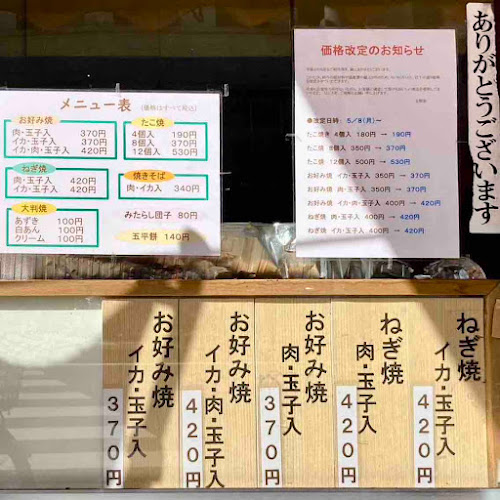 メニュー表 (価格はすべて税込)
お好み焼
肉・玉子入 370円
イカ・玉子入 370円
イカ・肉・玉子入 420円
ねぎ焼
肉・玉子入 420円
イカ・玉子入 420円
大判焼
あずき 100円
白あん 100円
クリーム 100円
たこ焼
4個入 190円
8個入 370円
12個入 530円
焼きそば
肉・イカ入 340円
みたらし団子 80円
五平餅 140円
価格改定のお知らせ
●改定日時: 5/8(月)~
たこ焼き 4個入 180円 → 190円
たこ焼 8個入 350円 → 370円
たこ焼 12個入 500円 → 530円
お好み焼 イカ・玉子入 350円 → 370円
お好み焼 肉・玉子入 350円 → 370円
お好み焼 イカ・肉・玉子入 400円 → 420円
ねぎ焼 肉・玉子入 400円 → 420円
ねぎ焼 イカ・玉子入 400円 → 420円
ありがとうございます
ねぎ焼
イカ・玉子入
420円
ねぎ焼
肉・玉子入
420円
お好み焼
肉・玉子入
370円
お好み焼
イカ・肉・玉子入
420円
お好み焼
イカ・玉子入
370円